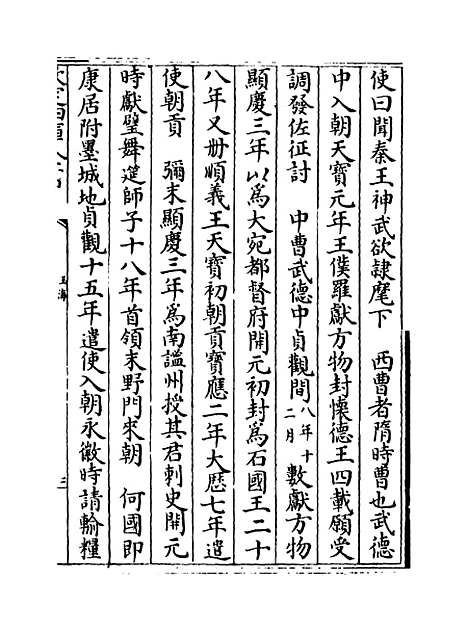 使曰聞秦王神武欲隷麾下　西曹者隋時曹也武德
中入朝天寶元年王僕羅獻方物封懷德王四載願受
調發佐征討　中曹武德中貞觀間八年十二月數獻方物
顯慶三年以為大宛都督府開元初封為石國王二十
八年又冊順義王天寶初朝貢寶應二年大歷七年遣
使朝貢　彌末顯慶三年為南謐州授其君刺史開元
時獻璧舞筵師子十八年首領末野門來朝　何國即
康居附墨城地貞觀十五年遣使入朝永徽時請輸糧
玉海
三